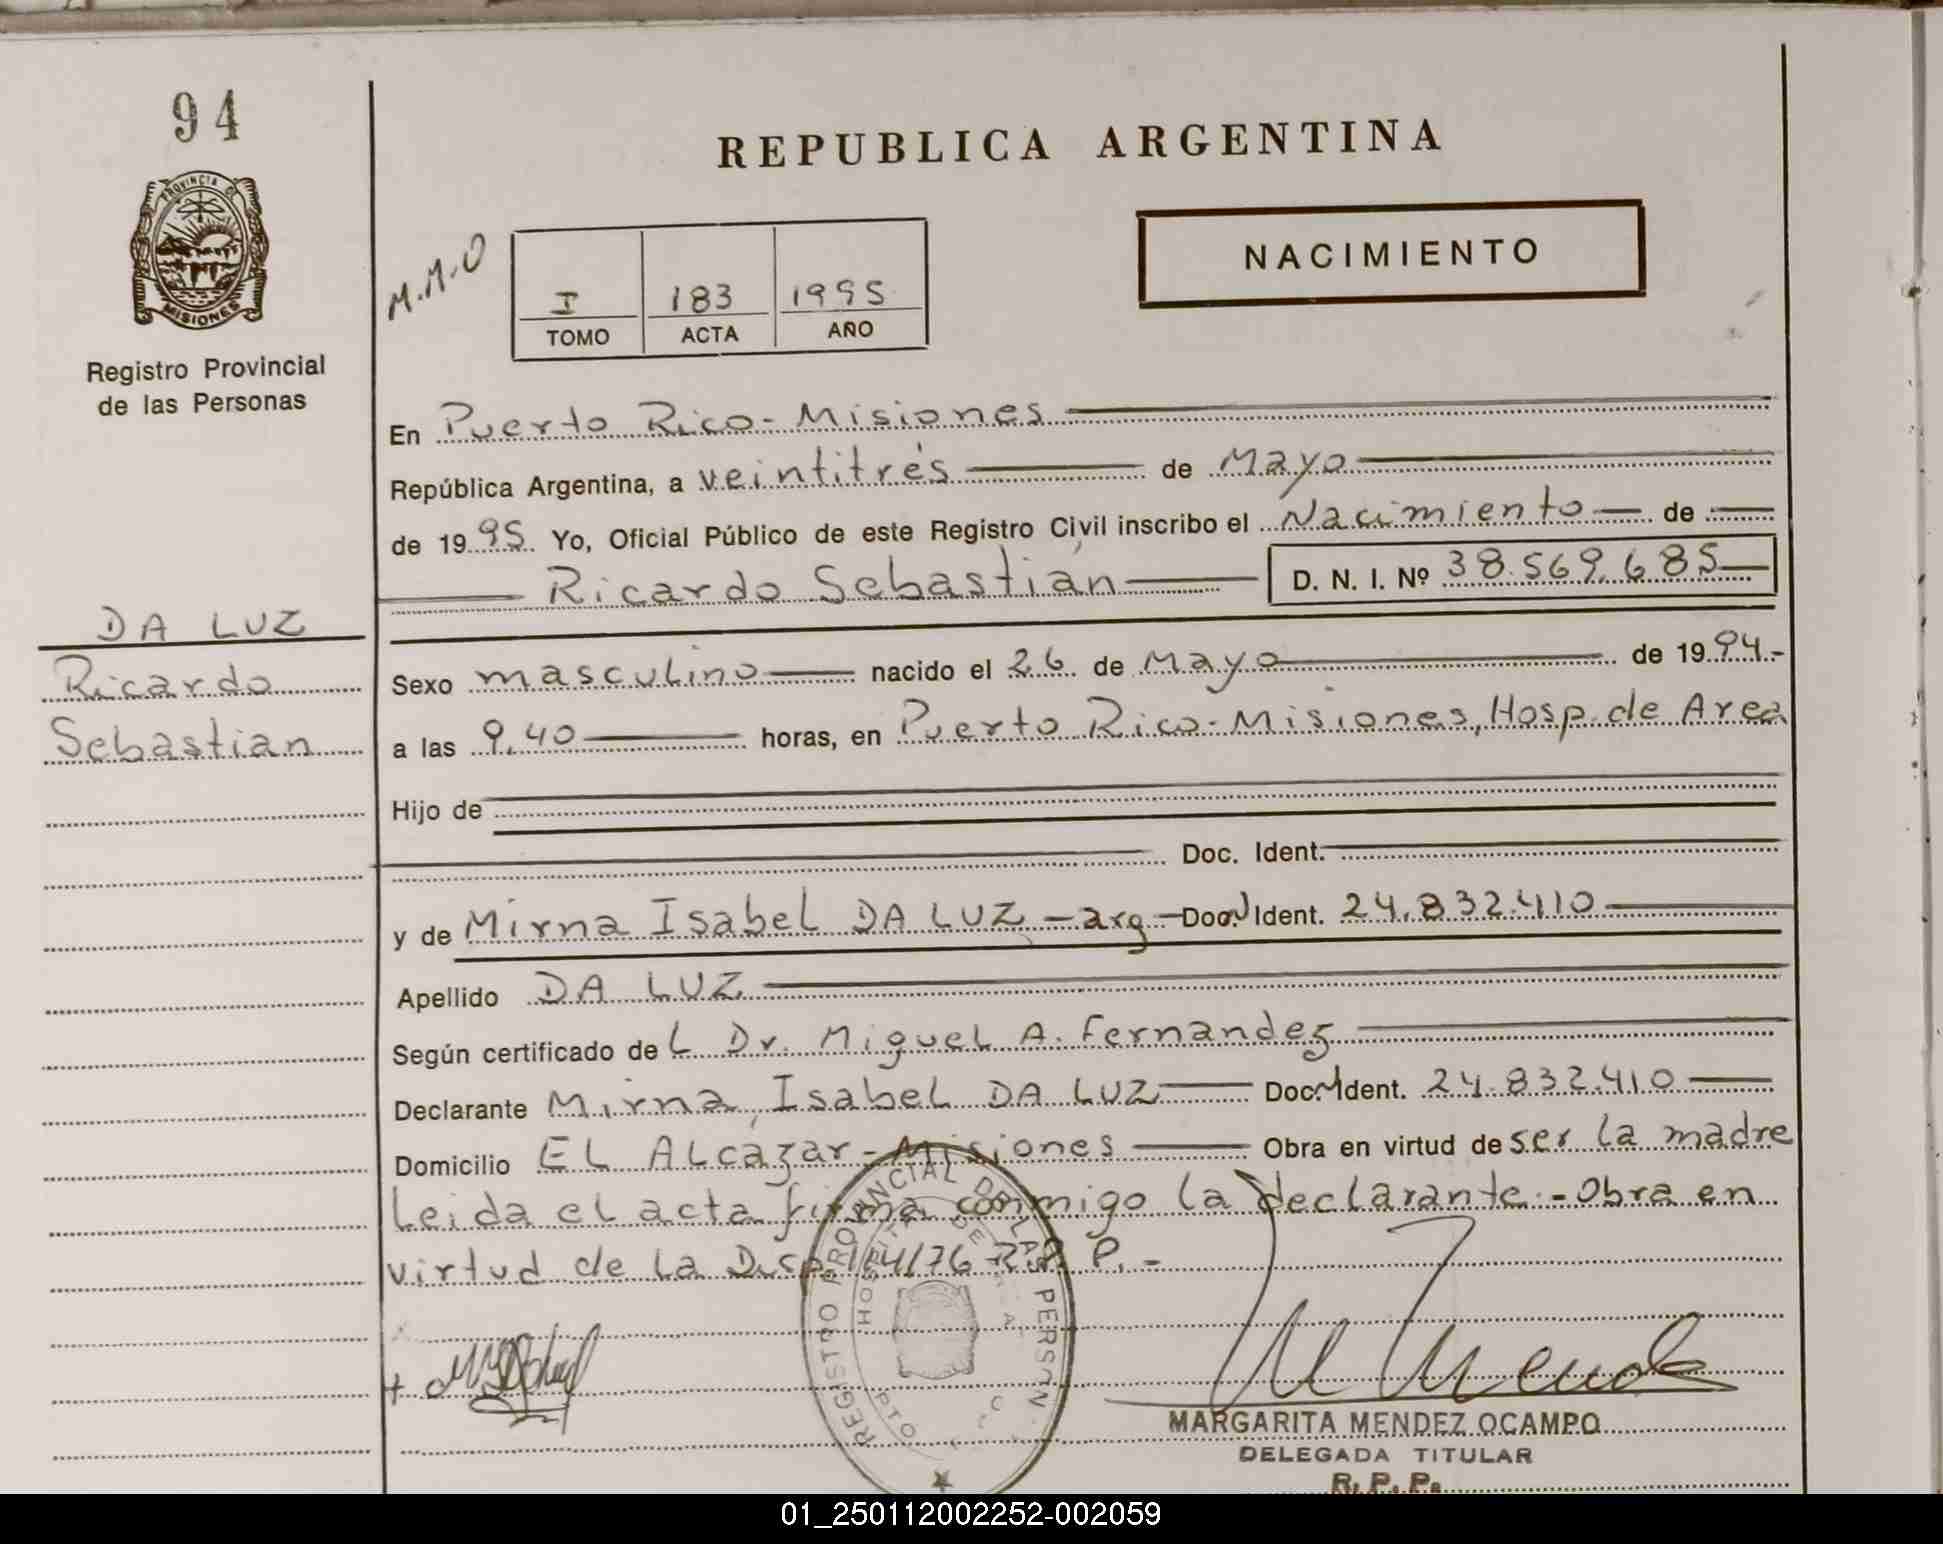 94
PROVINCIA DE
MISIONES
Registro Provincial
de las Personas
DA LUZ
Ricardo
Sebastian
REPUBLICA ARGENTINA
M.M.O
NACIMIENTO
I 183 1995
TOMO ACTA AÑO
En Puerto Rico - Misiones
República Argentina, a veintitrés de Mayo
de 1995 Yo, Oficial Público de este Registro Civil inscribo el Nacimiento de
Ricardo Sebastian D. N. I. Nº 38.569.685
Sexo masculino nacido el 26 de Mayo de 1994.-
a las 9,40 horas, en Puerto Rico - Misiones, Hosp. de Area
Hijo de
Doc. Ident.
y de Mirna Isabel DA LUZ - arg - Doc. Ident. 24.832.410
Apellido DA LUZ
Según certificado del Dr. Miguel A. Fernandez
Declarante Mirna Isabel DA LUZ Doc. Ident. 24.832.410
Domicilio EL Alcázar - Misiones Obra en virtud de ser la madre
Leida el acta firma conmigo la declarante.- Obra en
virtud de la Disp. 154/76 R.P.P.-
REGISTRO PROVINCIAL DE LAS PERSON
HOSPITAL DE
PTO
MARGARITA MENDEZ OCAMPO
DELEGADA TITULAR
R. P. P.
01_250112002252-002059